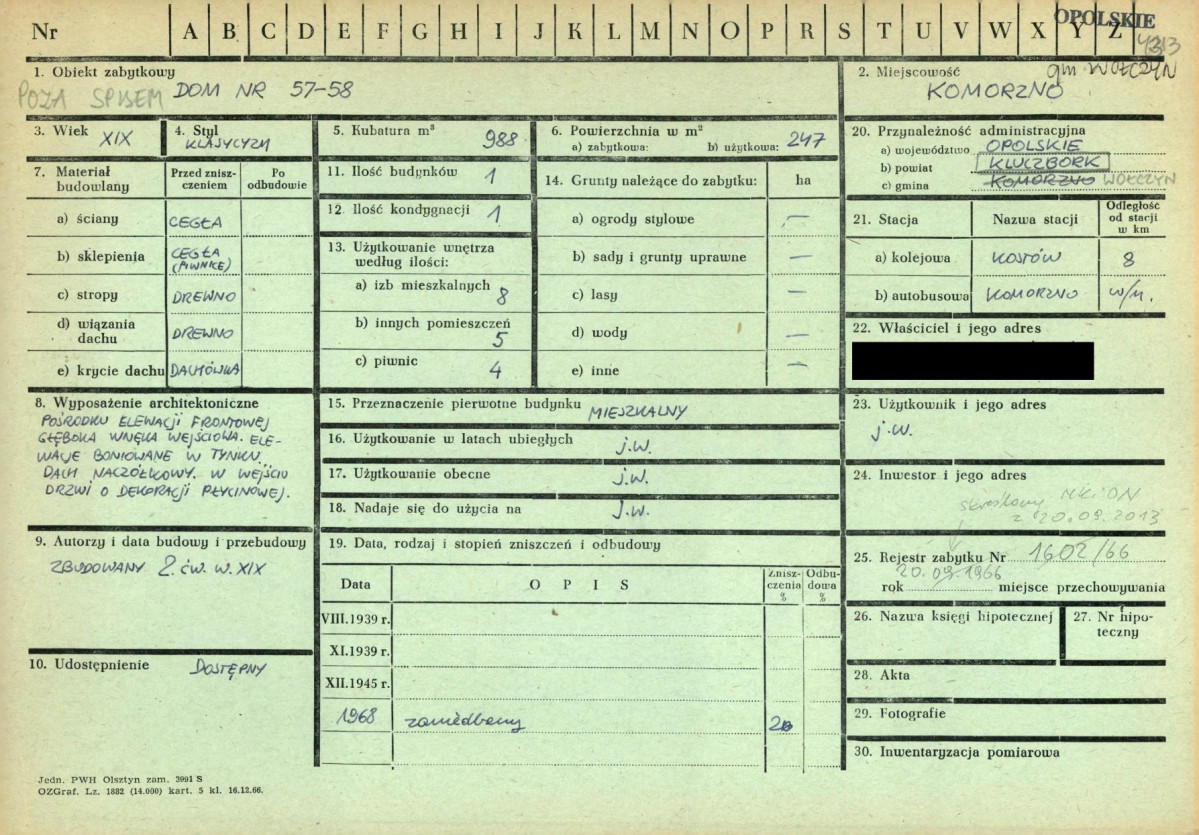 Nr A B C D E F G H I J K L M N O P R S T U V W X Y Z
OPOLSKIE
4313
gm WOŁCZYN
1. Obiekt zabytkowy
POZA SPISEM DOM NR 57-58
2. Miejscowość
KOMORZNO
3. Wiek XIX
4. Styl
KLASYCYZM
5. Kubatura m³ 988
6. Powierzchnia w m²
a) zabytkowa: b) użytkowa: 247
7. Materiał budowlany
Przed znisz-
czeniem
Po
odbudowie
a) ściany CEGŁA
b) sklepienia CEGŁA
(PIWNICE)
c) stropy DREWNO
d) wiązania
dachu DREWNO
e) krycie dachu DACHÓWKA
11. Ilość budynków 1
12. Ilość kondygnacji 1
13. Użytkowanie wnętrza
według ilości:
a) izb mieszkalnych 8
b) innych pomieszczeń
5
c) piwnic 4
14. Grunty należące do zabytku: ha
a) ogrody stylowe —
b) sady i grunty uprawne —
c) lasy —
d) wody —
e) inne —
20. Przynależność administracyjna
a) województwo OPOLSKIE
b) powiat KLUCZBORK
c) gmina KOMORZNO WOŁCZYN
21. Stacja Nazwa stacji
Odległość
od stacji
w km
a) kolejowa KOSTÓW 8
b) autobusowa KOMORZNO w/m.
22. Właściciel i jego adres
8. Wyposażenie architektoniczne
POŚRODKU ELEWACJI FRONTOWEJ
GŁĘBOKA WNĘKA WEJŚCIOWA. ELE-
WACJE BONIOWANE W TYNKU.
DACH NACZÓŁKOWY. W WEJŚCIU
DRZWI O DEKORACJI PŁYCINOWEJ.
15. Przeznaczenie pierwotne budynku MIESZKALNY
16. Użytkowanie w latach ubiegłych j.w.
17. Użytkowanie obecne j.w.
18. Nadaje się do użycia na j.w.
23. Użytkownik i jego adres
j.w.
24. Inwestor i jego adres
skreślony MKiDN
z 20.09.2013
9. Autorzy i data budowy i przebudowy
ZBUDOWANY 2. ćw. w. XIX
19. Data, rodzaj i stopień zniszczeń i odbudowy
Data OPIS
Znisz-
czenia
%
Odbu-
dowa
%
VIII.1939 r.
XI.1939 r.
XII.1945 r.
1968 zaniedbany
25. Rejestr zabytku Nr 1602/66
20.09.1966
rok miejsce przechowywania
26. Nazwa księgi hipotecznej
27. Nr hipo-
teczny
28. Akta
29. Fotografie
30. Inwentaryzacja pomiarowa
10. Udostępnienie DOSTĘPNY
Jedn. PWH Olsztyn zam. 3991 S
OZGraf. Lz. 1882 (14.000) kart. 5 kl. 16.12.66.